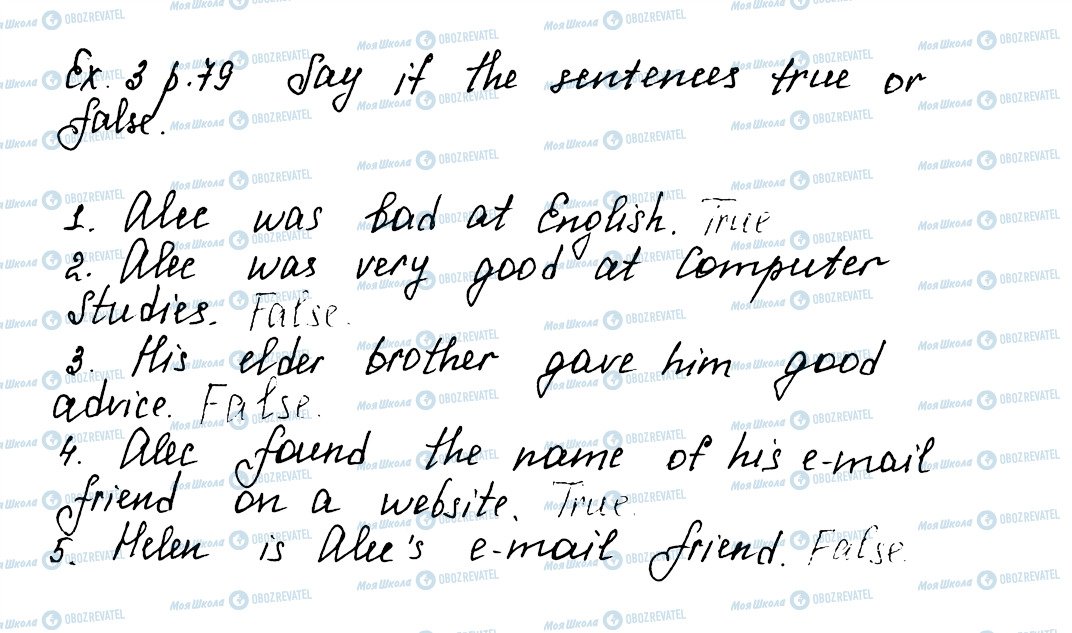 Ex. 3 p.79 Say if the sentences true or
false.
1. Alec was bad at English. True
2. Alec was very good at Computer
Studies. False.
3. His elder brother gave him good
advice. False.
4. Alec found the name of his e-mail
friend on a website. True.
5. Helen is Alec's e-mail friend. False.